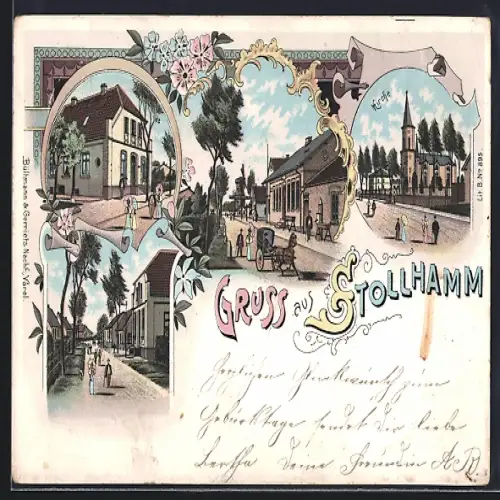 Kirche
Lit. B. No. 895.
Bültmann & Gerriets Nachf. Varel.
GRUSS aus STOLLHAMM
Herzlichen Glückwunsch zum
Geburtstage sendet Dir liebe
Bertha Deine Freundin A. R.